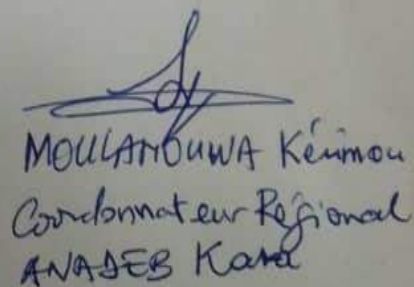 MOULAMOUWA Kérimou
Coordonnateur Régional
ANADEB Kara